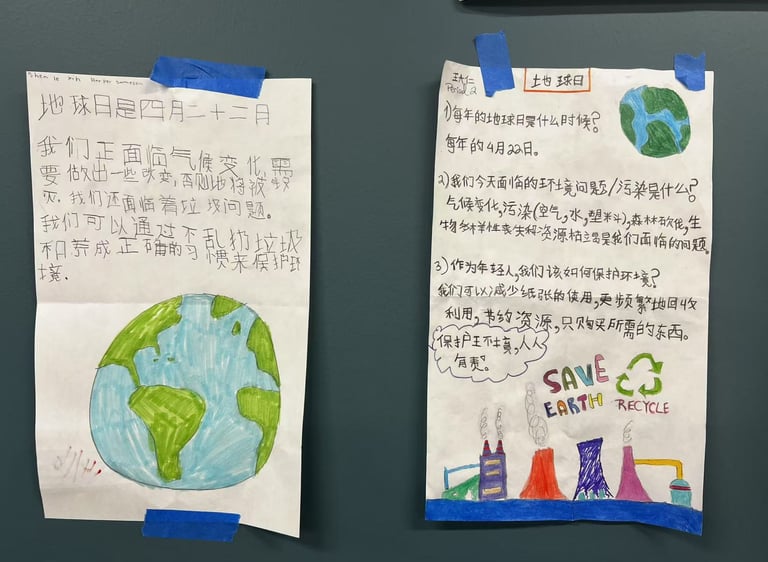 Shen le xin Harper
地球日是四月二十二日
我们正面临气候变化,需
要做出一些改变,否则地球将被
灭.我们还面临着垃圾问题。
我们可以通过不乱扔垃圾
和养成正确的习惯来保护环
境.
玞仁
Period 2
地球日
1)每年的地球日是什么时候?
每年的4月22日。
2)我们今天面临的环境问题/污染是什么?
气候变化,污染(空气,水,塑料),森林砍伐,生
物多样性丧失和资源枯竭是我们面临的问题。
3)作为年轻人,我们该如何保护环境?
我们可以减少纸张的使用,更频繁地回收
利用,节约资源,只购买所需的东西。
保护王不境,人人
有责。
SAVE
EARTH
RECYCLE